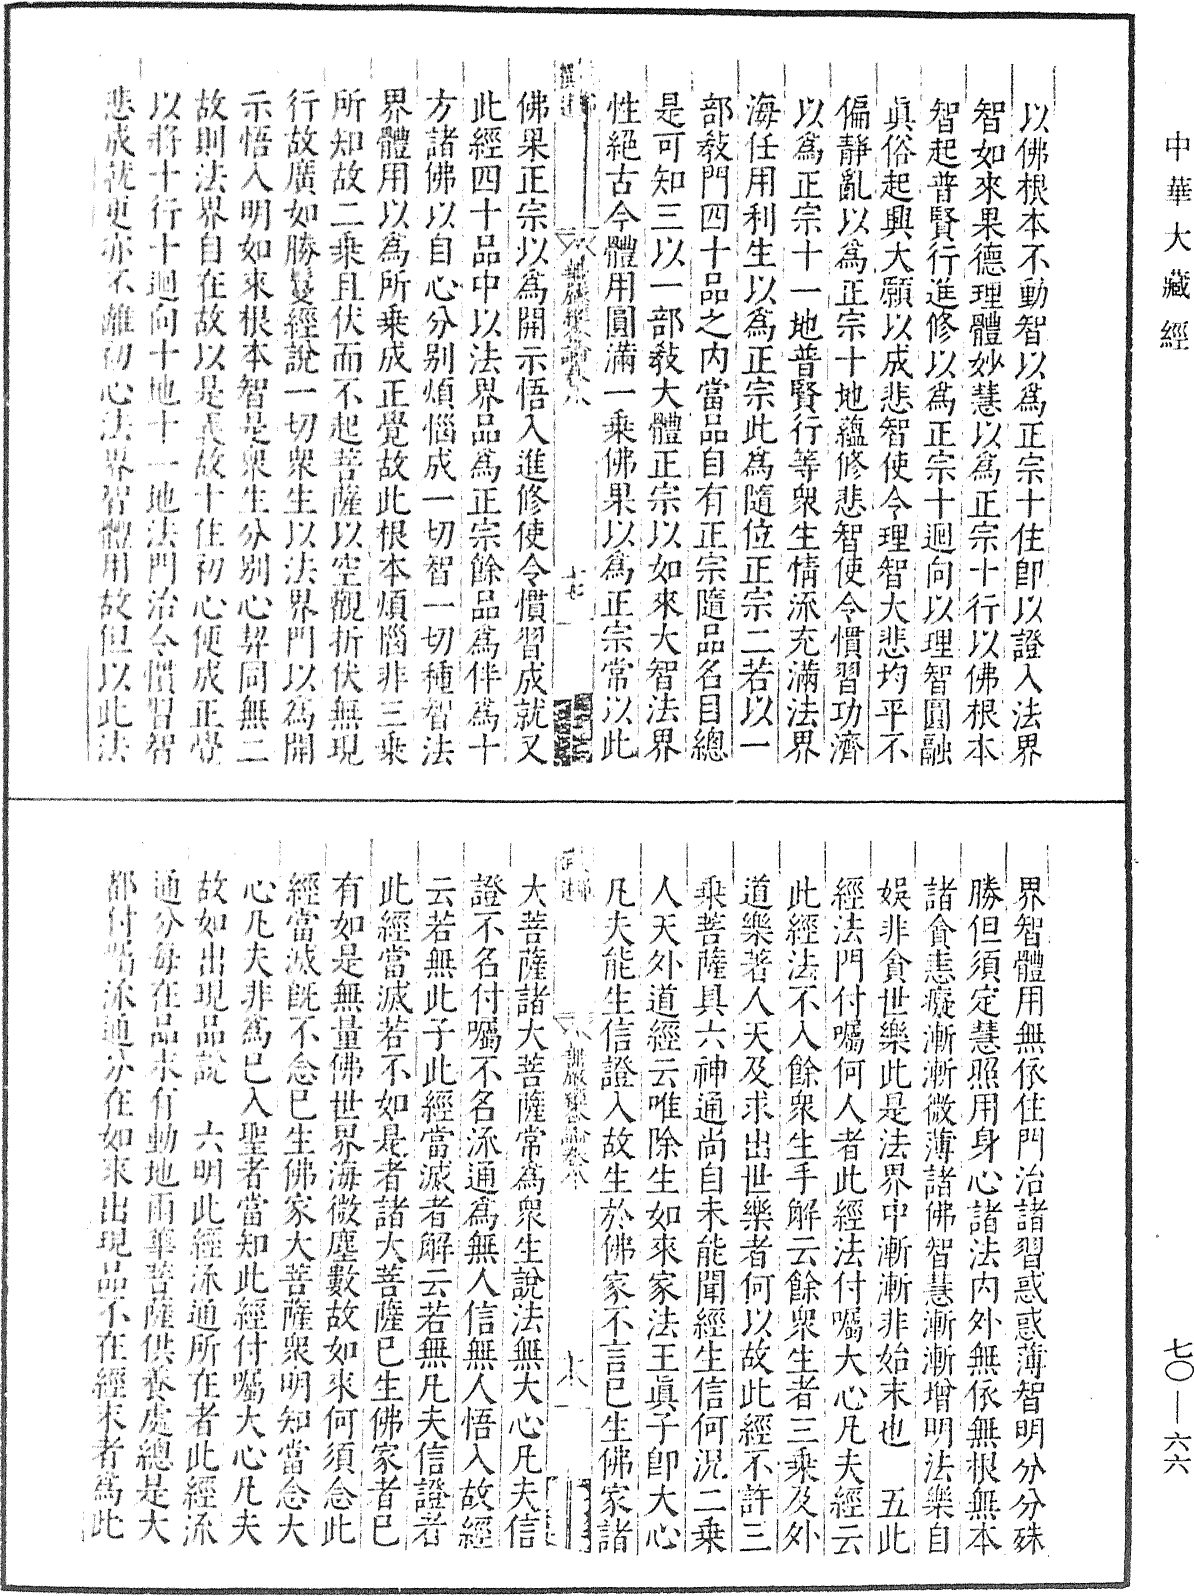 中華大藏經
以佛根本不動智以爲正宗十住卽以證入法界
智如來果德理體妙慧以爲正宗十行以佛根本
智起普賢行進修以爲正宗十迴向以理智圓融
眞俗起興大願以成悲智使令理智大悲均平不
偏靜亂以爲正宗十地蘊修悲智使令慣習功濟
以爲正宗十一地普賢行等衆生情流充滿法界
海任用利生以爲正宗此爲隨位正宗二若以一
部教門四十品之內當品自有正宗隨品名目總
是可知三以一部教大體正宗以如來大智法界
性絕古今體用圓滿一乘佛果以爲正宗常以此
華嚴經合論卷八
十七
佛果正宗以爲開示悟入進修使令慣習成就又
此經四十品中以法界品爲正宗餘品爲伴爲十
方諸佛以自心分別煩惱成一切智一切種智法
界體用以爲所乘成正覺故此根本煩惱非三乘
所知故二乘且伏而不起菩薩以空觀折伏無現
行故廣如勝鬘經說一切衆生以法界門以爲開
示悟入明如來根本智是衆生分別心契同無二
故則法界自在故以是義故十住初心便成正覺
以將十行十迴向十地十一地法門治令慣習智
悲成就更亦不離初心法界智體用故但以此法
界智體用無依住門治諸習惑惑薄智明分分殊
勝但須定慧照用身心諸法內外無依無根無本
諸貪恚癡漸漸微薄諸佛智慧漸漸增明法樂自
娛非貪世樂此是法界中漸漸非始末也　五此
經法門付囑何人者此經法付囑大心凡夫經云
此經法不入餘衆生手解云餘衆生者三乘及外
道樂著人天及求出世樂者何以故此經不許三
乘菩薩具六神通尚自未能聞經生信何況二乘
人天外道經云唯除生如來家法王眞子卽大心
凡夫能生信證入故生於佛家不言已生佛家諸
華嚴經合論卷八
大菩薩諸大菩薩常爲衆生說法無大心凡夫信
證不名付囑不名流通爲無人信無人悟入故經
云若無此子此經當滅者解云若無凡夫信證者
此經當滅若不如是者諸大菩薩已生佛家者已
有如是無量佛世界海微塵數故如來何須念此
經當滅旣不念已生佛家大菩薩衆明知當念大
心凡夫非爲已入聖者當知此經付囑大心凡夫
故如出現品說　六明此經流通所在者此經流
通分每在品末有動地雨華菩薩供養處總是大
都付囑流通分在如來出現品不在經末者爲此
七〇—六六